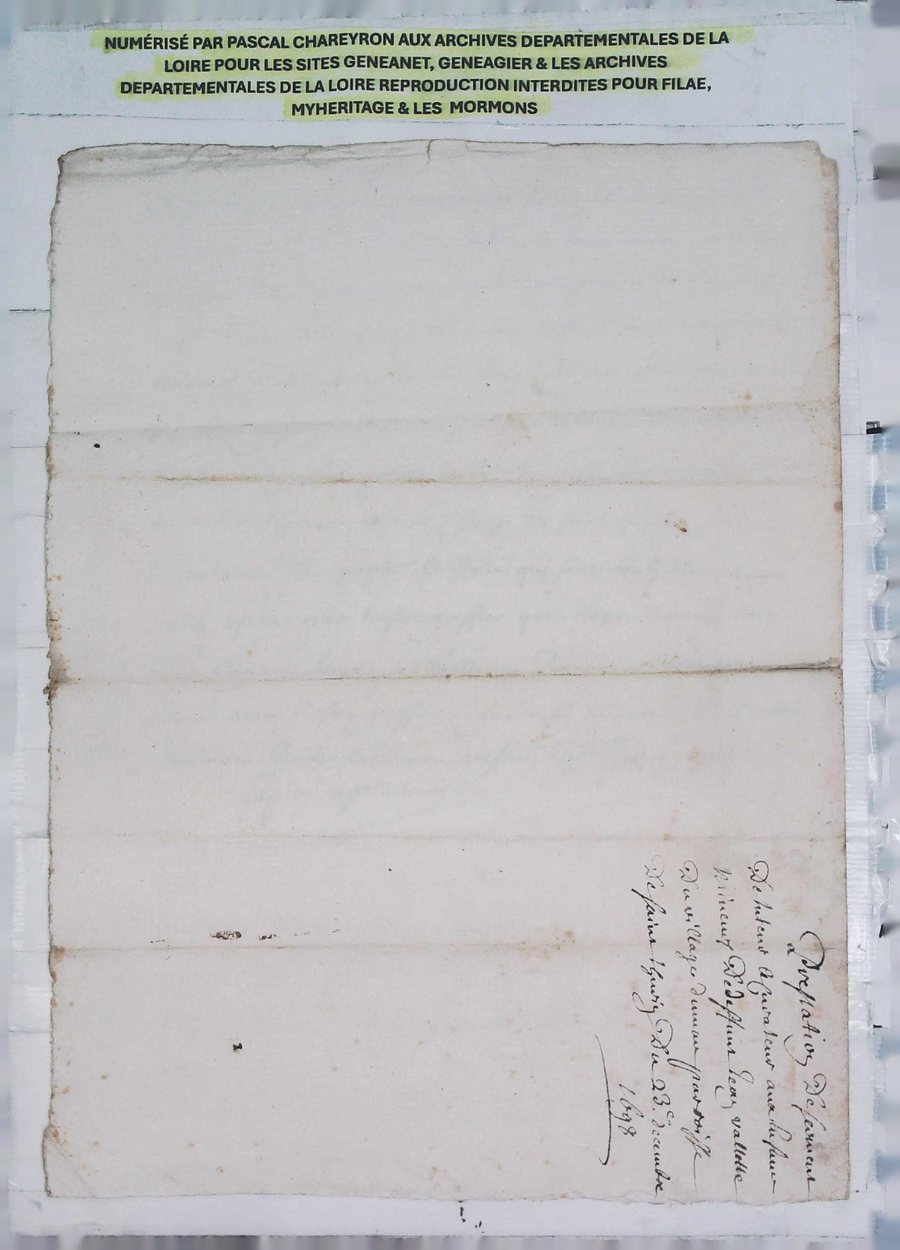 NUMÉRISÉ PAR PASCAL CHAREYRON AUX ARCHIVES DEPARTEMENTALES DE LA
LOIRE POUR LES SITES GENEANET, GENEAGIER & LES ARCHIVES
DEPARTEMENTALES DE LA LOIRE REPRODUCTION INTERDITES POUR FILAE,
MYHERITAGE & LES MORMONS
Prestation De serment
De tuteur & curateur aux enfans
mineurs De deffunt Jean vallotte
Du village paroisse
De saint Du 23e. decembre
1698